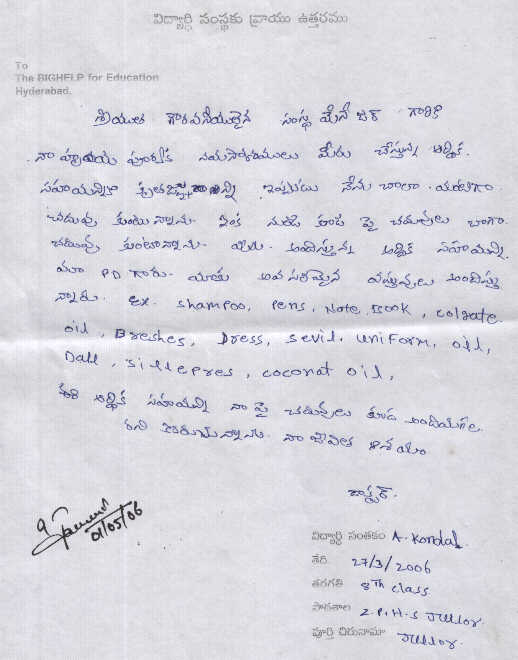 విద్యార్థి సంస్థకు వ్రాయు ఉత్తరము
To
The BIGHELP for Education
Hyderabad.
శ్రీయుత గౌరవనీయులైన సంస్థ మేనేజర్ గారికి
నా హృదయ పూర్వక నమస్కారములు మీరు చేస్తున్న ఆర్థిక
సహాయన్నికి ఇప్పుడు నేను చాలా
చదువు కుంటున్నాను. ఇంక నుండి కూడ పై చదువులు బాగా
చదువు కుంటాన్నాను. అందిస్తున్న ఆర్థిక సహాయన్ని
మా PD గారు. మాకు అవసరమైన వస్తువులు అందిస్తు
న్నారు. ex. shampoo, pens, Note, Book, colgate.
oil, Breshes, Dress, sevil. uniform, oil,
Dall, silleepres, coconat oil,
ఆర్థిక సహాయన్ని నా పై చదువులు కూడ అందియగల
రని కోరుచున్నాను. నా జీవిత ఆశయం
డాక్టర్.
01/05/06
విద్యార్థి సంతకం A. Kondal
తేది. 27/3/2006
తరగతి 8th class
పాఠశాల Z.P.H.S Jullor.
పూర్తి చిరునామా Jullor.